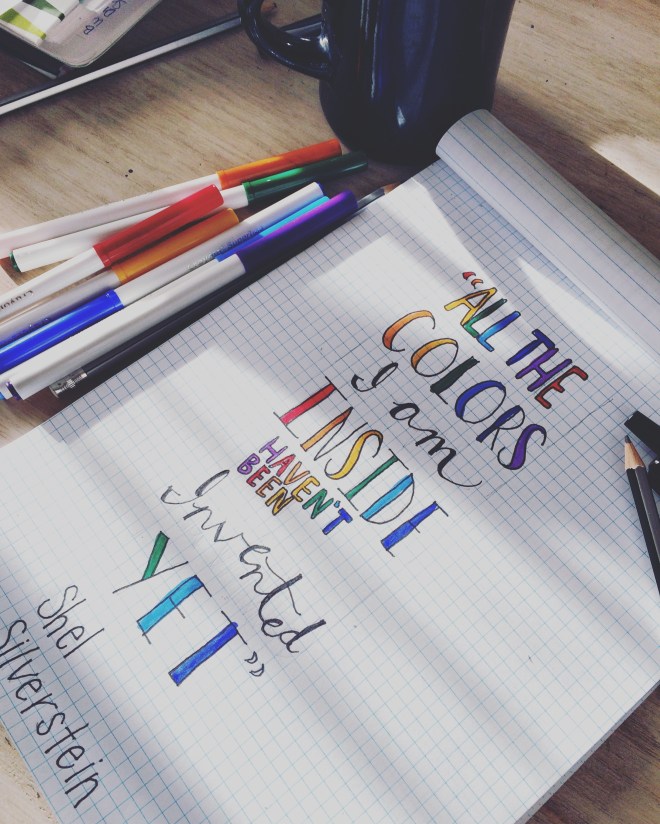 "ALL THE
COLORS
I am
INSIDE
HAVEN'T
BEEN
Invented
YET"
Shel
Silverstein